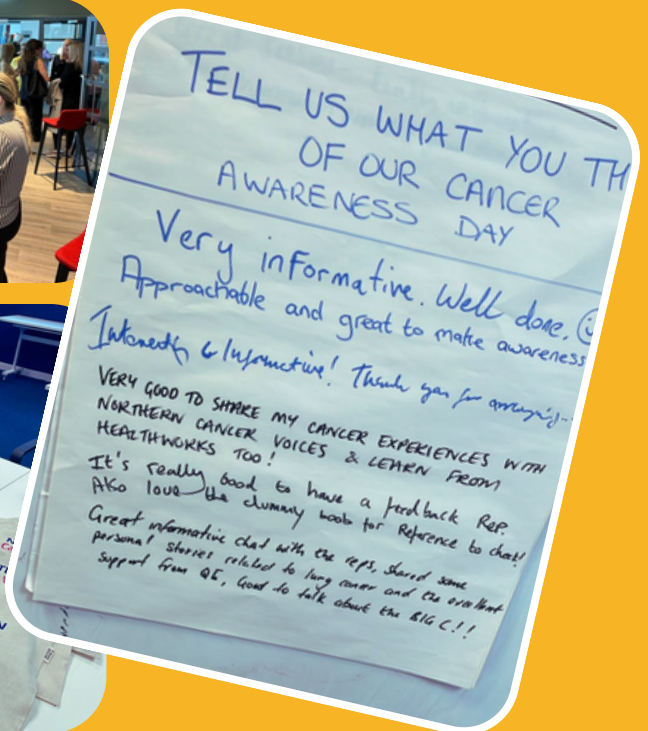 TELL US WHAT YOU TH
OF OUR CANCER
AWARENESS DAY
Very informative. Well done.
Approachable and great to make awareness
Interesting & Informative! Thank you for arranging
VERY GOOD TO SHARE MY CANCER EXPERIENCES WITH
NORTHERN CANCER VOICES & LEARN FROM
HEALTHWORKS TOO!
It's really good to have a feedback Rep.
Also love the dummy boob for Reference to check!
Great informative chat with the reps, shared some
personal stories related to lung cancer and the excellent
support from QE, Good to talk about the BIG C!!